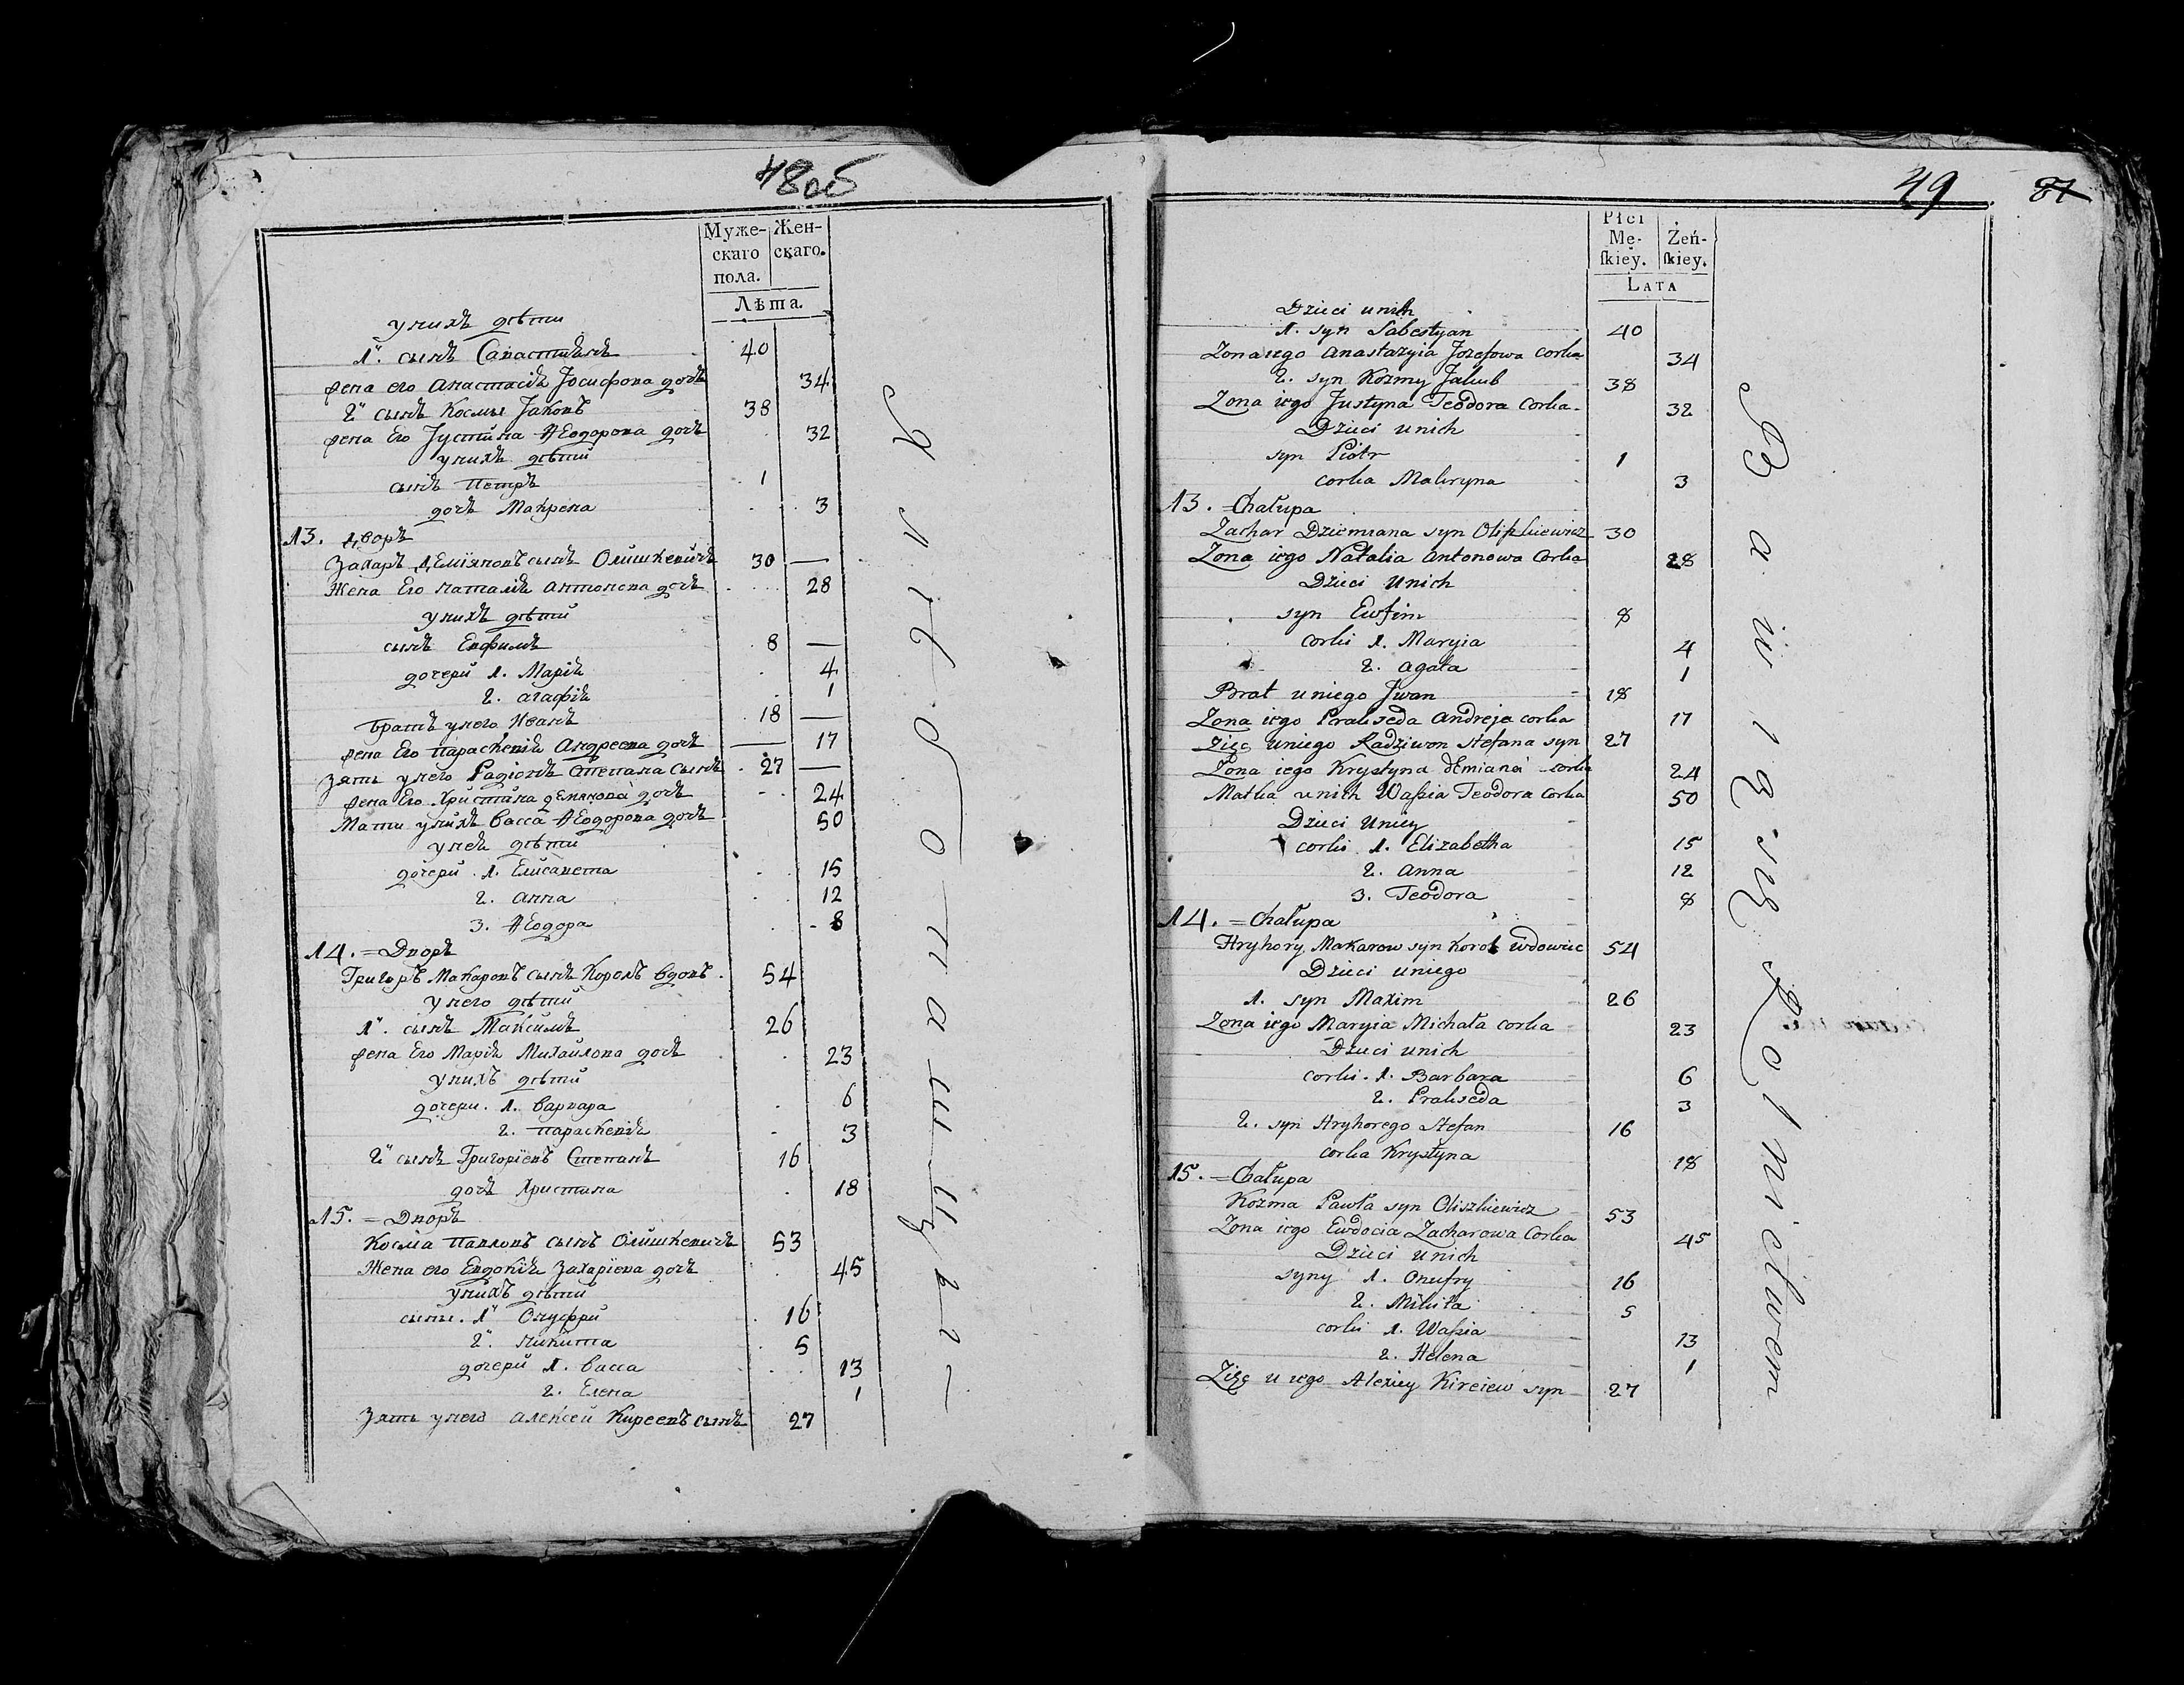 48об
Муже- Жен-
скаго скаго.
пола.
Лѣта.
у нихъ дѣти
1й. сынъ Сапастіянъ 40
жена его Анастасія Іосифова дочь 34
2й сынъ Космы Іаковъ 38
жена Его Јустина Ѳеодорова дочь 32
у нихъ дѣти
сынъ Петръ 1
дочь Макрена 3
13. Дворъ
Захаръ Деміяновъ сынъ Олишкевичъ 30 —
Жена Его Наталія Антонова дочь 28
у нихъ дѣти
сынъ Евфимъ 8 —
дочери 1. Марія 4
2. Агафія 1
Братъ у него Иванъ 18 —
жена Его Параскевія Андреева дочь — 17
Зять у него Радіонъ Степана Сынъ 27 —
жена Его Христина Демянова дочь 24
Мати у нихъ Васса Ѳеодорова дочь 50
у неи дѣти
дочери 1. Елисавета 15
2. Анна 12
3. Ѳеодора 8
14. = Дворъ
Григоръ Макаровъ сынъ Король вдовъ 54
у него дѣти
1й. сынъ Максимъ 26
жена Его Марія Михайлова дочь 23
у нихъ дѣти
дочери. 1. Варвара 6
2. Параскевія 3
2й сынъ Григоріевъ Степанъ 16
дочь Христина 18
15. = Дворъ
Косма Павловъ сынъ Олишкевичъ 53
Жена его Евдокія Захаріева дочь 45
у нихъ дѣти
сыны. 1й Онуфри 16
2й. Никита 5
дочери 1. Васса 13
2. Елена 1
Зять у него Алексей Киреевъ сынъ 27
49 87
Płci
Mę- Żeń-
skiey. skiey.
LATA
Dzieci u nich
1. syn Sabestyan 40
Zona iego Anastazyia Jozefowa Corka 34
2. syn Kozmy Jakub 38
Zona iego Justyna Teodora Corka 32
Dzieci u nich
syn Piotr 1
corka Makryna 3
13. = Chałupa
Zachar Dziemiana syn Oliszkiewicz 30
Zona iego Natalia Antonowa Corka 28
Dzieci u nich
syn Ewfim 8
corki 1. Maryia 4
2. Agata 1
Brat u niego Jwan 18
Zona iego Prakseda Andreja corka 17
Zięc u niego Radziwon Stefana syn 27
Zona iego Krystyna Demiana corka 24
Matka u nich Wassia Teodora Corka 50
Dzieci u niey
corki 1. Elizabetha 15
2. Anna 12
3. Teodora 8
14. = Chałupa
Hryhory Makarow syn Korol wdowiec 54
Dzieci u niego
1. syn Maxim 26
Zona iego Maryia Michała corka 23
Dzieci u nich
corki. 1. Barbara 6
2. Prakseda 3
2. syn Hryhorego Stefan 16
corka Krystyna 18
15. = Chałupa
Kozma Pawła syn Oliszkiewicz 53
Zona iego Ewdocia Zacharowa Corka 45
Dzieci u nich
syny 1. Onufry 16
2. Mikita 5
corki 1. Wassia 13
2. Helena 1
Zięc u iego Alexiey Kireiew syn 27
Bawią się Rolnictwem